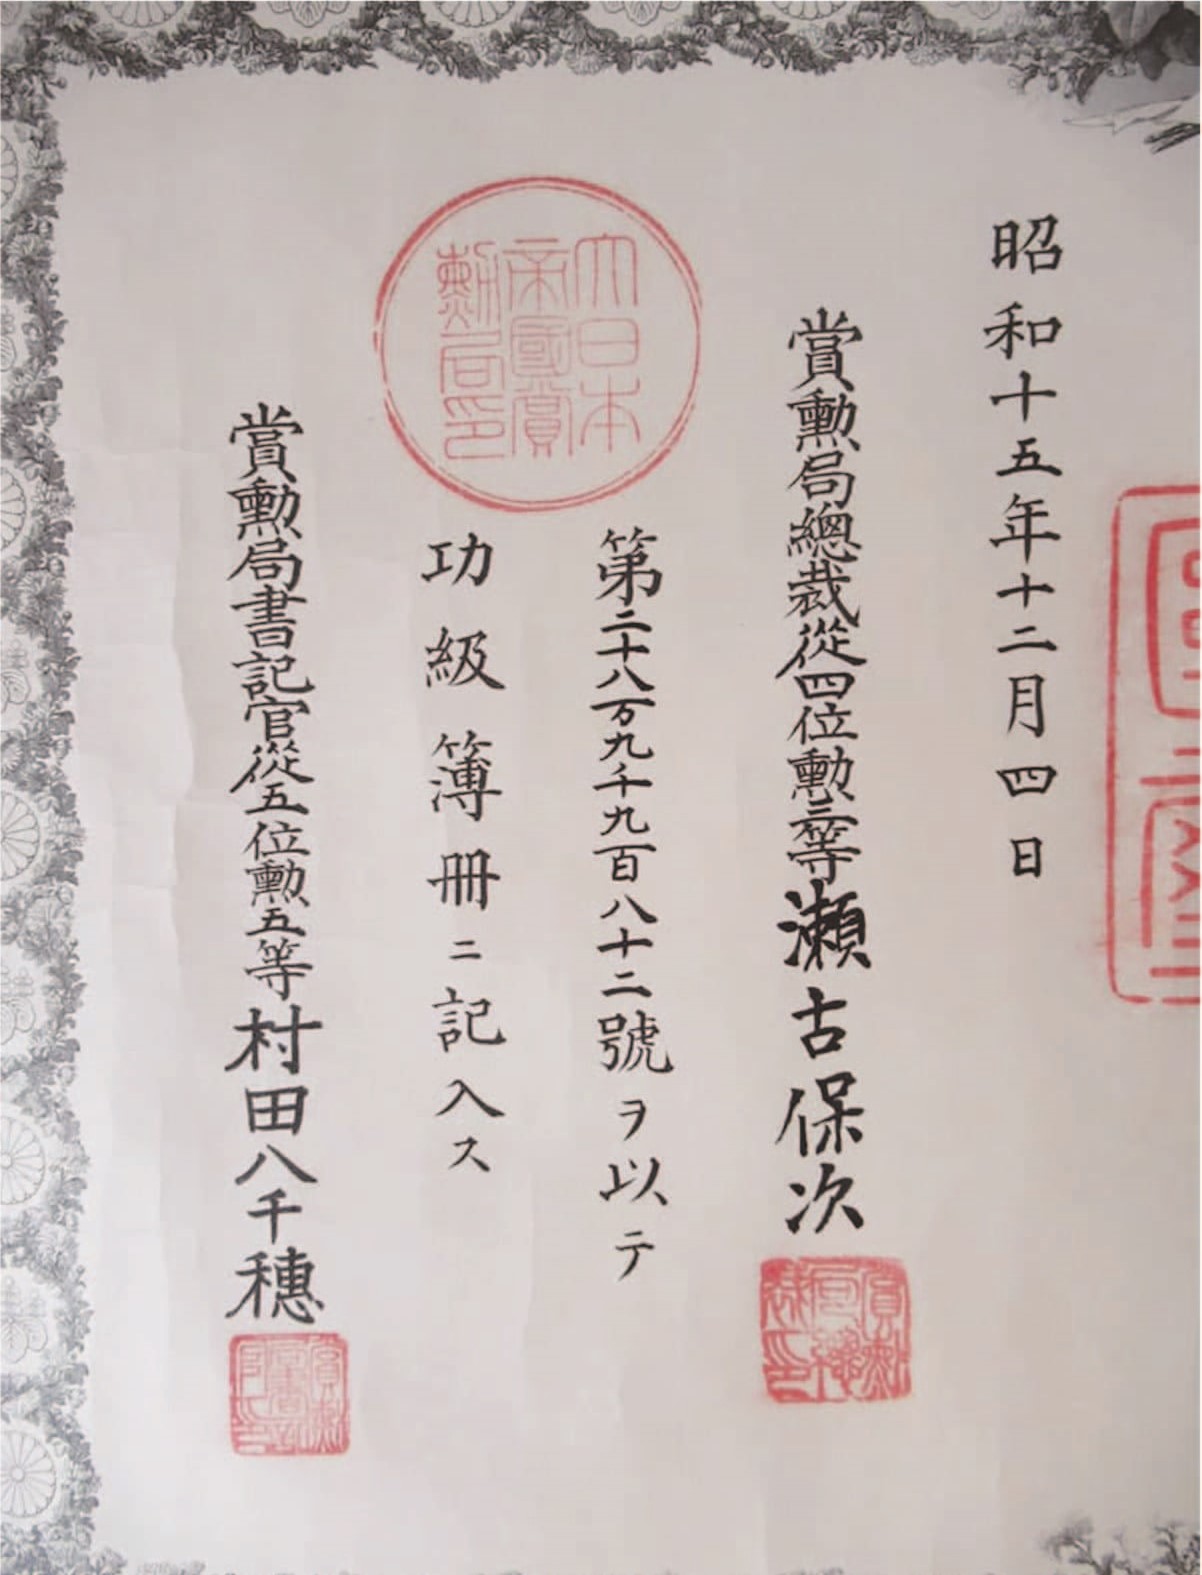 昭和十五年十二月四日
賞勲局總裁從四位勲三等瀬古保次
第二十八万九千九百八十二號ヲ以テ
功級簿冊ニ記入ス
賞勲局書記官從五位勲五等村田八千穗
大日本
帝國賞
勲局印